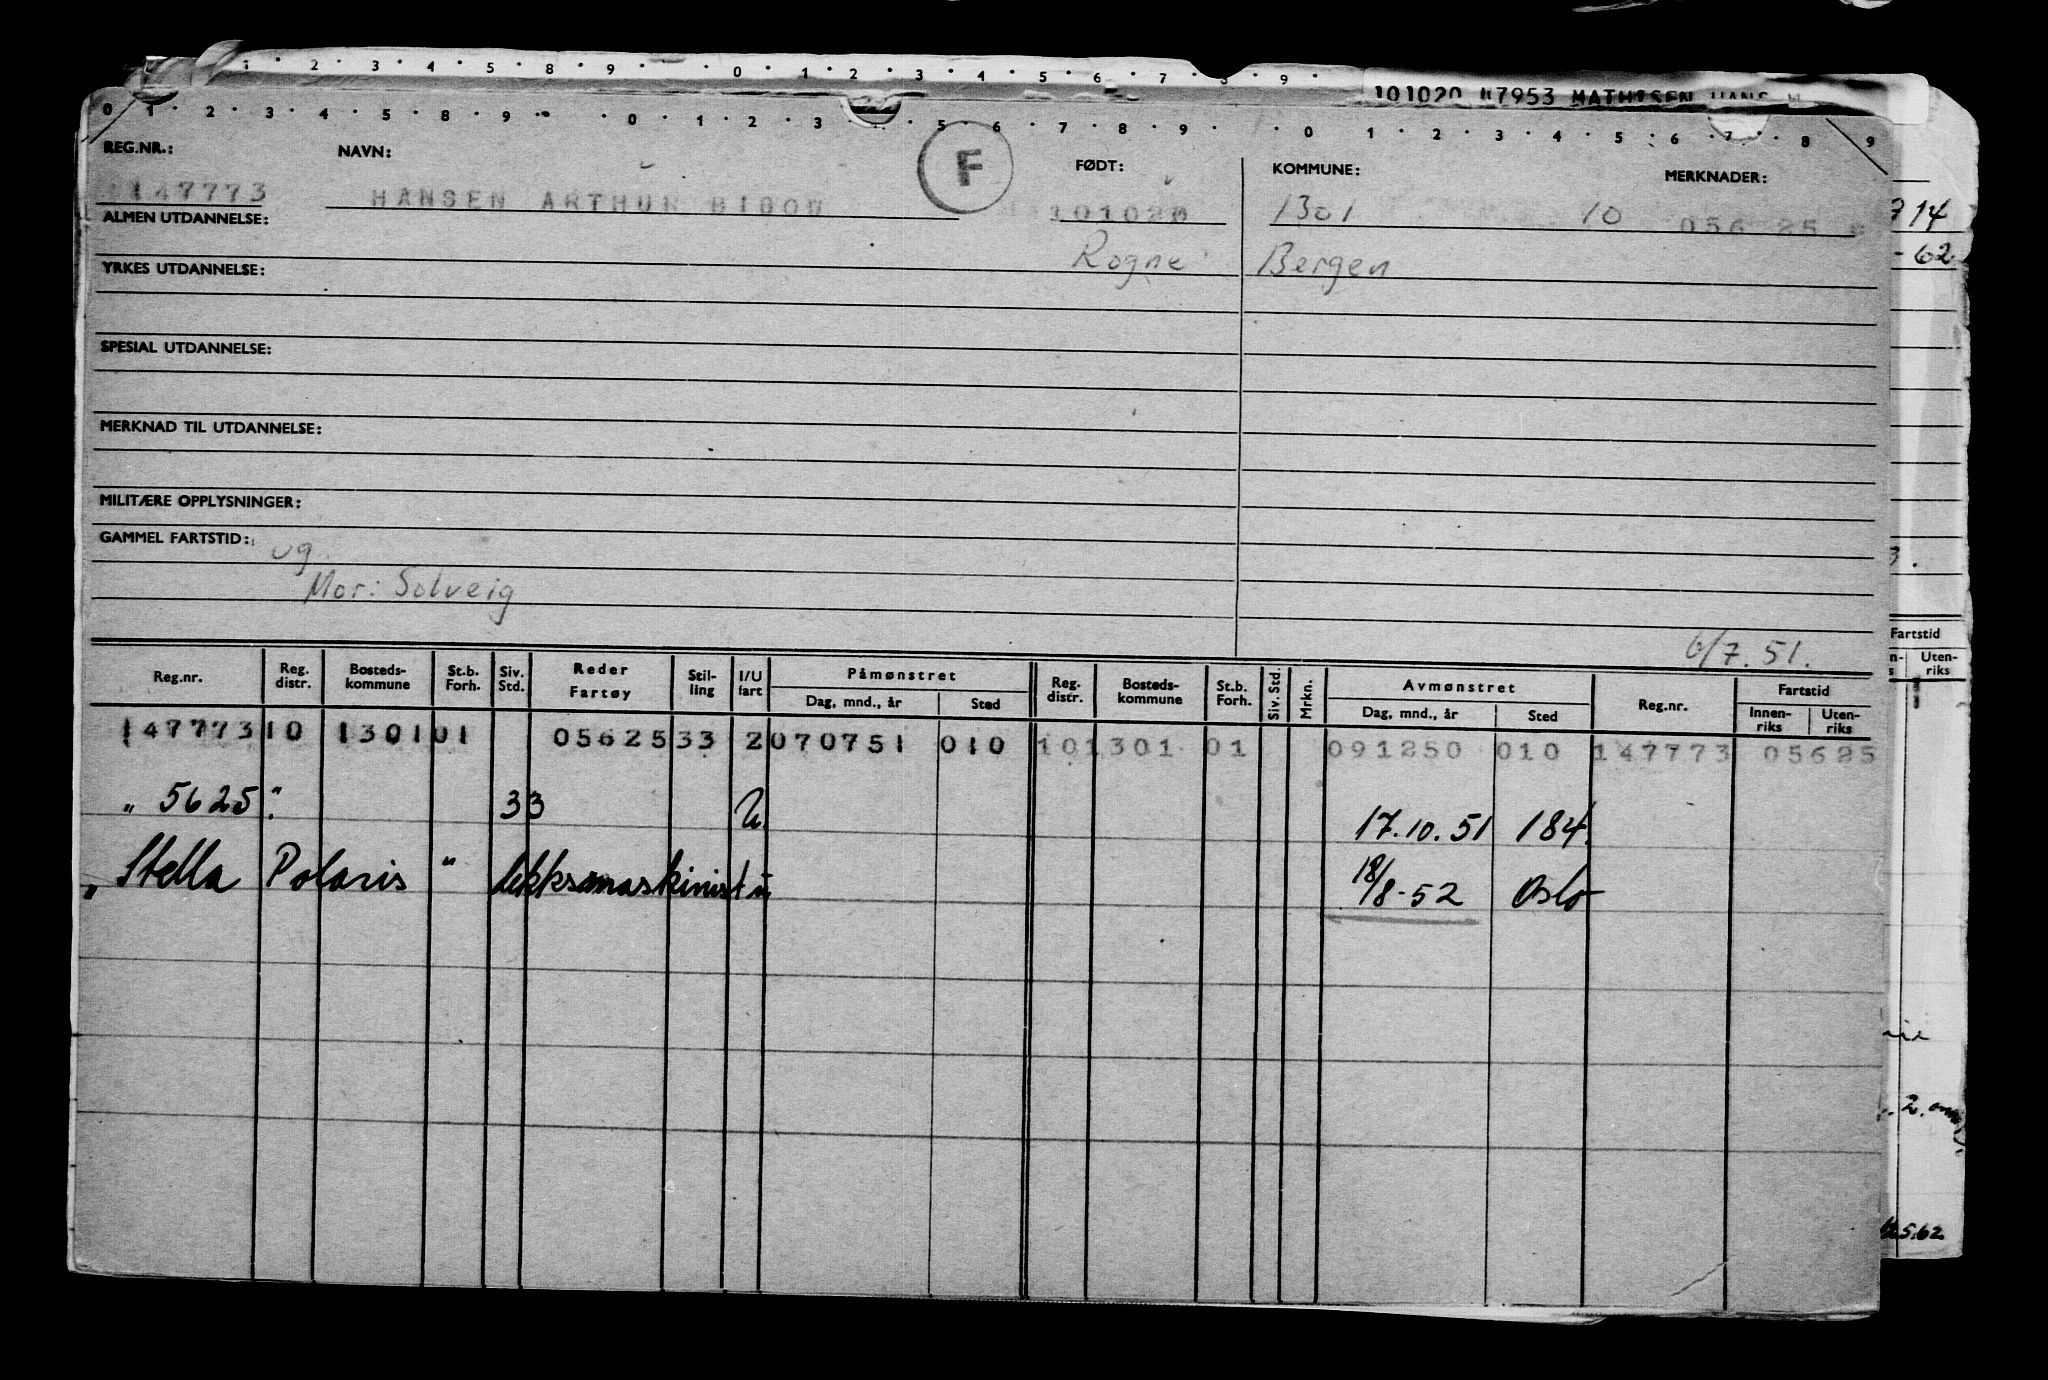 1 2 3 4 5 8 9 0 1 2 3 4 5 6 7 8 9
101020 47953 MATHISEN HANS
0 1 2 3 4 5 8 9 0 1 2 3 4 5 6 7 8 9 0 1 2 3 4 5 6 7 8 9
REG.NR.: NAVN: F FØDT: KOMMUNE: MERKNADER:
147773 HANSEN ARTHUR 101020 1301 10 056 25
714
ALMEN UTDANNELSE:
Rogne Bergen
- 62
YRKES UTDANNELSE:
SPESIAL UTDANNELSE:
MERKNAD TIL UTDANNELSE:
MILITÆRE OPPLYSNINGER:
GAMMEL FARTSTID: ug
3.
Mor: Solveig
6/7.51.
Fartstid
Uten-riks
Reg.nr. Reg. distr. Bosteds-kommune St.b. Forh. Siv. Std. Reder Fartøy Stil-ling I/U fart Påmønstret Reg. distr. Bosteds-kommune St.b. Forh. Siv. Std. Mrkn. Avmønstret Reg.nr. Fartstid
Dag, mnd., år Sted Dag, mnd., år Sted Innen-riks Uten-riks
147773 10 1301 01 05625 33 2 070751 010 10 1301 01 091250 010 147773 05625
" 5625 " 33 U. 17.10.51 184.
" Stella Polaris " dekksmaskinist u 18/8-52 Oslo
2.
5.62